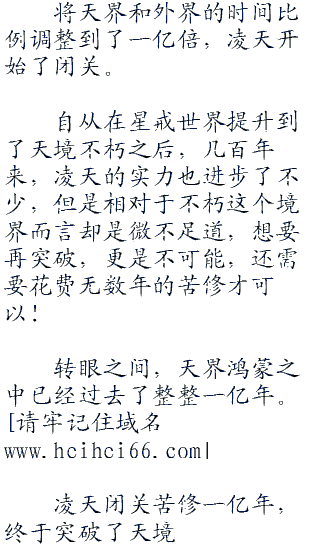 将天界和外界的时间比
例调整到了一亿倍，凌天开
始了闭关。
自从在星戒世界提升到
了天境不朽之后，几百年
来，凌天的实力也进步了不
少，但是相对于不朽这个境
界而言却是微不足道，想要
再突破，更是不可能，还需
要花费无数年的苦修才可
以！
转眼之间，天界鸿蒙之
中已经过去了整整一亿年。
[请牢记住域名
www.hcihci66.com|
凌天闭关苦修一亿年，
终于突破了天境